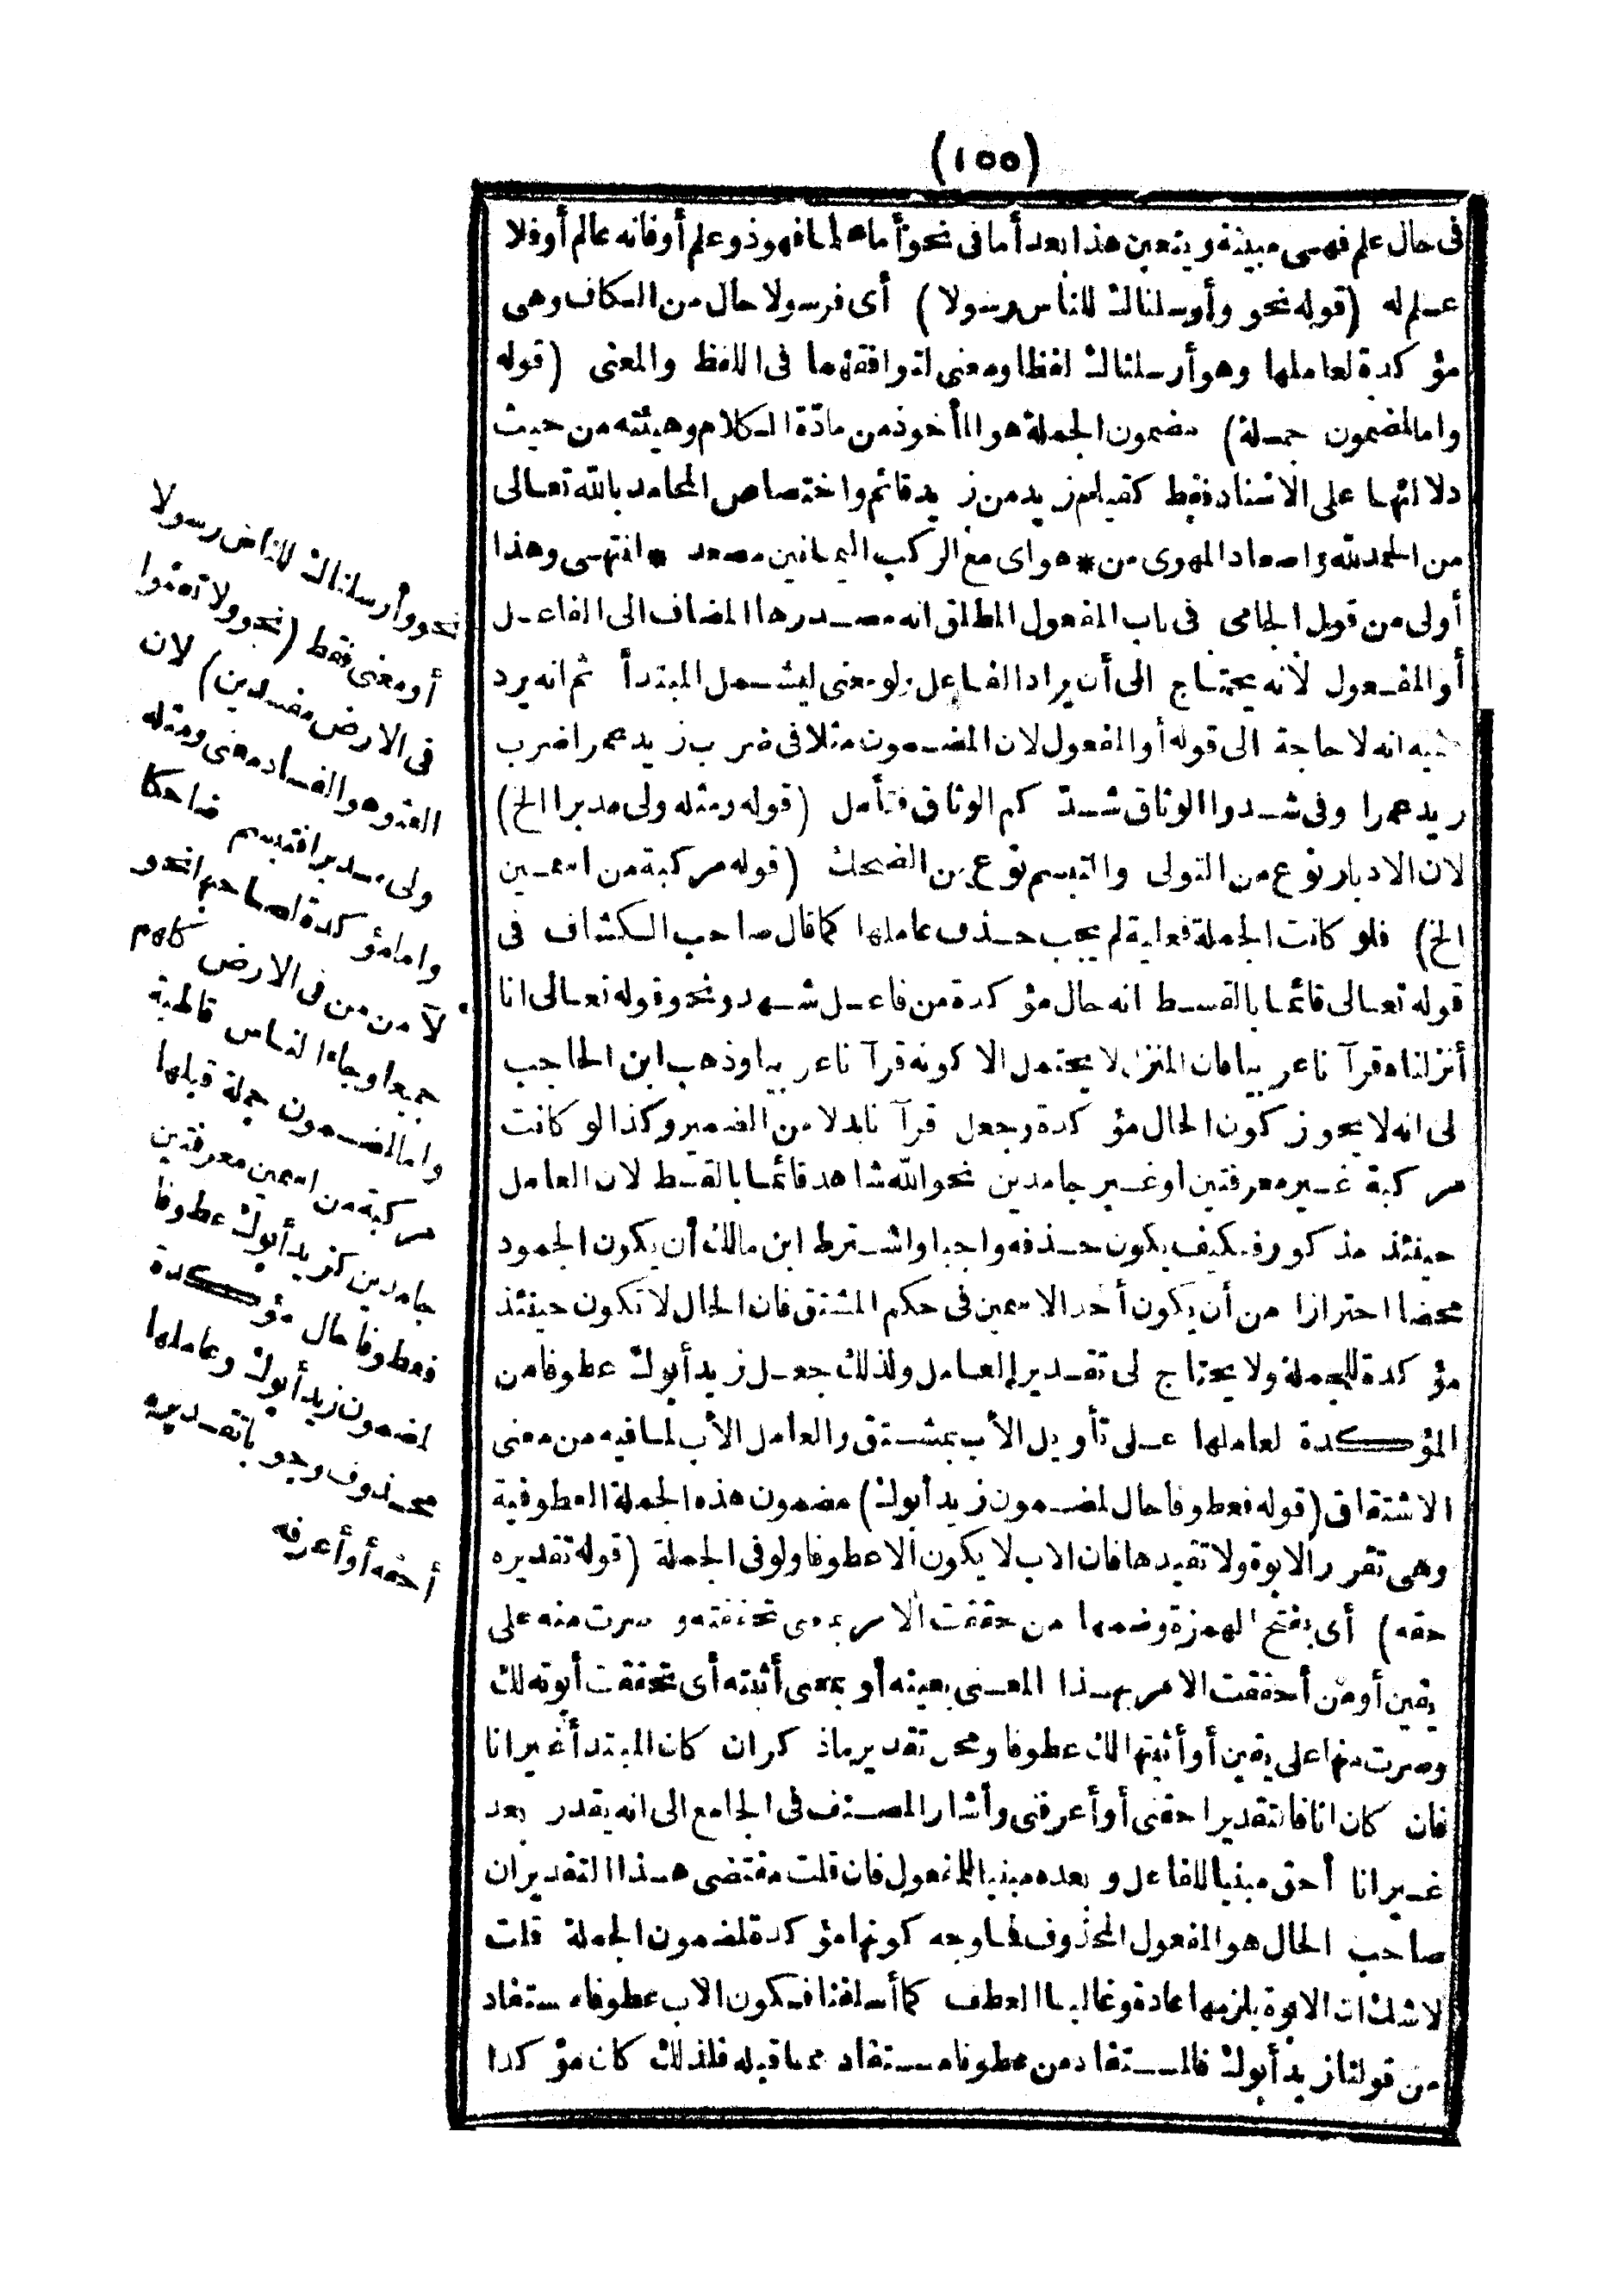 (١٥٥)
فى حال علم فهى مبينة ويتعين هذا بعد أما فى نحو أما علما فهو ذو علم أو فانه عالم أو فلا
علم له (قوله نحو وأرسلناك للناس رسولا) أى فرسولا حال من الكاف وهى
مؤكدة لعاملها وهو أرسلناك لفظا ومعنى لتوافقهما فى اللفظ والمعنى (قوله
واما لمضمون جملة) مضمون الجملة هو المأخوذ من مادّة الكلام وهيئته من حيث
دلالتها على الاسناد فقط كقيام زيد من زيد قائم واختصاص المحامد بالله تعالى
من الحمد لله واصعاد المهوى من * هواى مع الركب اليمانين مصعد * انتهى وهذا
أولى من قول الجامى فى باب المفعول المطلق انه مصدرها المضاف الى الفاعل
أو المفعول لأنه يحتاج الى أن يراد الفاعل ولو معنى ليشمل المبتدأ ثم انه يرد
عليه انه لا حاجة الى قوله أو المفعول لان المضمون مثلا فى ضرب زيد عمرا ضرب
زيد عمرا وفى شدوا الوثاق شدّكم الوثاق فتأمل (قوله ومثله ولى مدبرا الخ)
لان الادبار نوع من التولى والتبسم نوع من الضحك (قوله مركبة من اسمين
الخ) فلو كانت الجملة فعلية لم يجب حذف عاملها كما قال صاحب الكشاف فى
قوله تعالى قائما بالقسط انه حال مؤكدة من فاعل شهد ونحو قوله تعالى انا
أنزلناه قرآنا عربيا فان المنزل لا يحتمل الا كونه قرآنا عربيا وذهب ابن الحاجب
لى انه لا يجوز كون الحال مؤكدة وجعل قرآنا بدلا من الضمير وكذا لو كانت
مركبة غير معرفتين او غير جامدين نحو الله شاهد قائما بالقسط لان العامل
حينئذ مذكور فكيف يكون حذفه واجبا واشترط ابن مالك أن يكون الجمود
محضا احترازا من أن يكون أحد الاسمين فى حكم المشتق فان الحال لا تكون حينئذ
مؤكدة للجملة ولا يحتاج لى تقدير العامل ولذلك جعل زيد أبوك عطوفا من
المؤكدة لعاملها على تأويل الأب بمشتق والعامل الأب لما فيه من معنى
الاشتقاق (قوله فعطوفا حال لمضمون زيد أبوك) مضمون هذه الجملة العطوفية
وهى تقرر الابوة ولا تقيدها فان الاب لا يكون الا عطوفا ولو فى الجملة (قوله تقديره
حقه) أى بفتح الهمزة وضمها من حققت الامر بمعنى تحققته وصرت منه على
يقين أو من أحققت الامر بهذا المعنى بعينه أو بمعنى أثبته أى تحققت أبوته لك
وصرت منها على يقين أو أثبتها لك عطوفا ومحل تقدير ما ذكر ان كان المبتدأ غير انا
فان كان انا فالتقدير احقنى أو أعرفنى وأشار المصنف فى الجامع الى انه يقدر بعد
غير انا أحق مبنيا للفاعل وبعده مبنيا للمفعول فان قلت مقتضى هذا التقدير ان
صاحب الحال هو المفعول المحذوف فما وجه كونها مؤكدة لمضمون الجملة قلت
لا شك ان الابوة يلزمها عادة وغالبا العطف كما أسلفنا فكون الاب عطوفا مستفاد
من قولنا زيد أبوك فالمستفاد من عطوفا مستفاد مما قبله فلذلك كان مؤكدا
نحو وأرسلناك للناس رسولا
أو معنى فقط (نحو ولا تعثوا
فى الارض مفسدين) لان
العثو هو الفساد معنى ومثله
ولى مدبرا فتبسم ضاحكا
واما مؤكدة لصاحبها نحو
لآمن من فى الارض كلهم
جميعا وجاء الناس قاطبة
واما لمضمون جملة قبلها
مركبة من اسمين معرفتين
جامدين كزيد أبوك عطوفا
فعطوفا حال مؤكدة
لمضمون زيد أبوك وعاملها
محذوف وجوبا تقديره
أحقه أو أعرفه